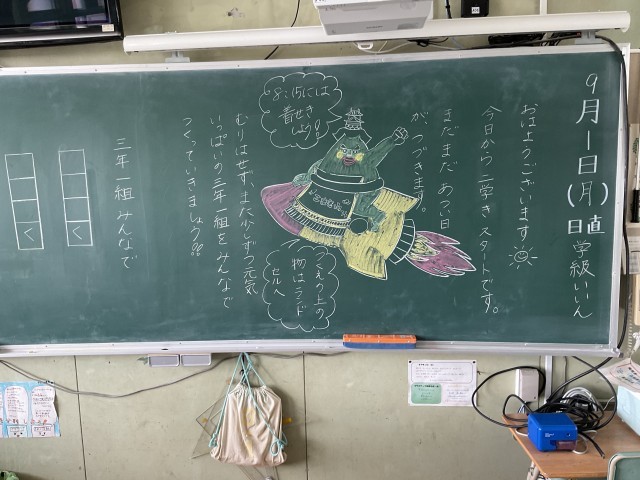 9月1日(月)
日直 学級いいん
おはようございます
今日から二学きスタートです。
まだまだあつい日
が、つづきます。
8:15には
着せき
しよう!!
つくえの上の
物はランド
セルへ
むりはせず、また少しずつ元気
いっぱいの三年一組をみんなで
つくっていきましょう!!
三年一組みんなで
く
く